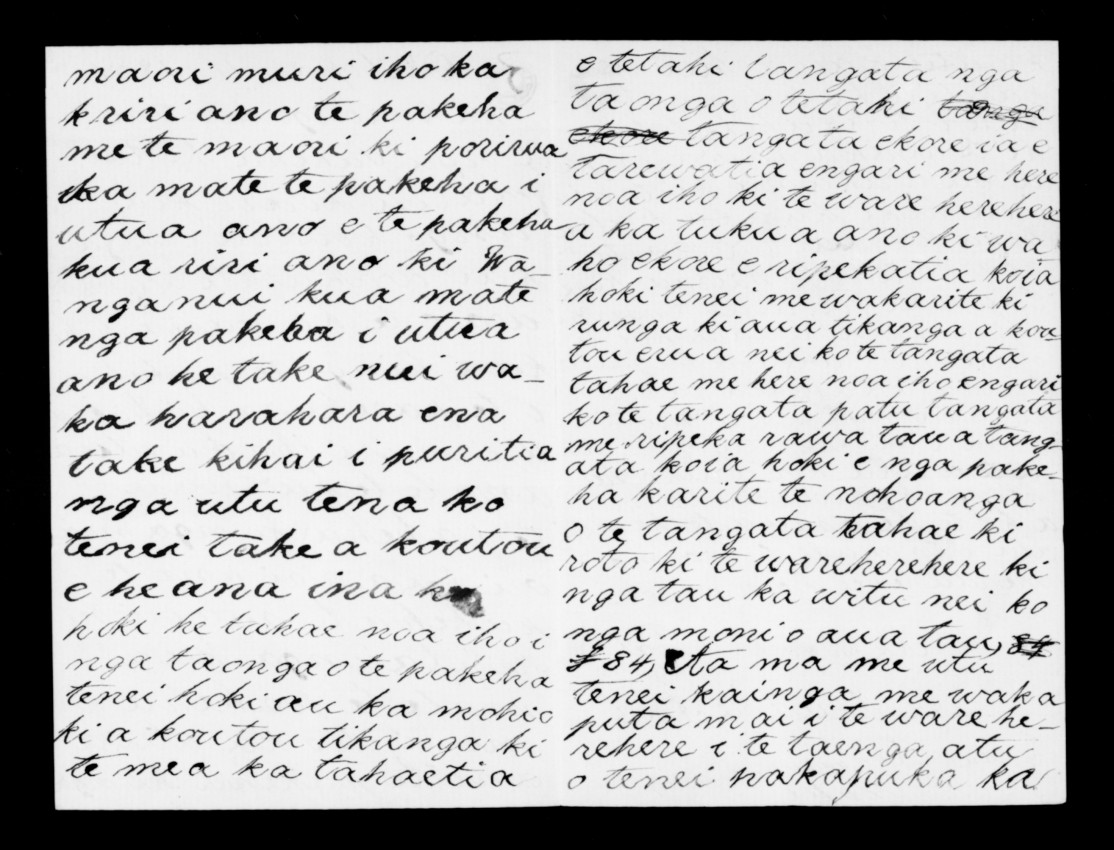 maori muri iho ka
kriri ano te pakeha
me te maori ki porirua
ka mate te pakeha i
utua ano e te pakeha
kua riri ano ki Wa_
nganui kua mate
nga pakeha i utua
ano he take nui wa_
ka harahara ena
take kihai i puritia
nga utu tena ko
tenei take a koutou
e he ana ina
hoki he tahae noa iho i
nga taonga o te pakeha
tenei hoki au ka mohio
ki a koutou tikanga ki
te mea ka tahaetia
e tetahi tangata nga
taonga o tetahi tangu
ekore tangata ekore ia e
tarewatia engari me here
noa iho ki te ware herehere
a ka tukua ano ki wa
ho ekore e ripekatia koia
hoki tenei me wakarite ki
runga ki aua tikanga a kou_
tou erua nei ko te tangata
tahae me here noa iho engari
ko te tangata patu tangata
me ripeka rawa taua tang_
ata koia hoki e nga pake_
ha karite te nohoanga
o te tangata tahae ki
roto ki te wareherehere ki
nga tau ka witu nei ko
nga moni o aua tau, 84
£84, Eta ma me utu
tenei kainga me waka
puta mai i te ware he_
rehere i te taenga atu
o tenei pakapuka ka